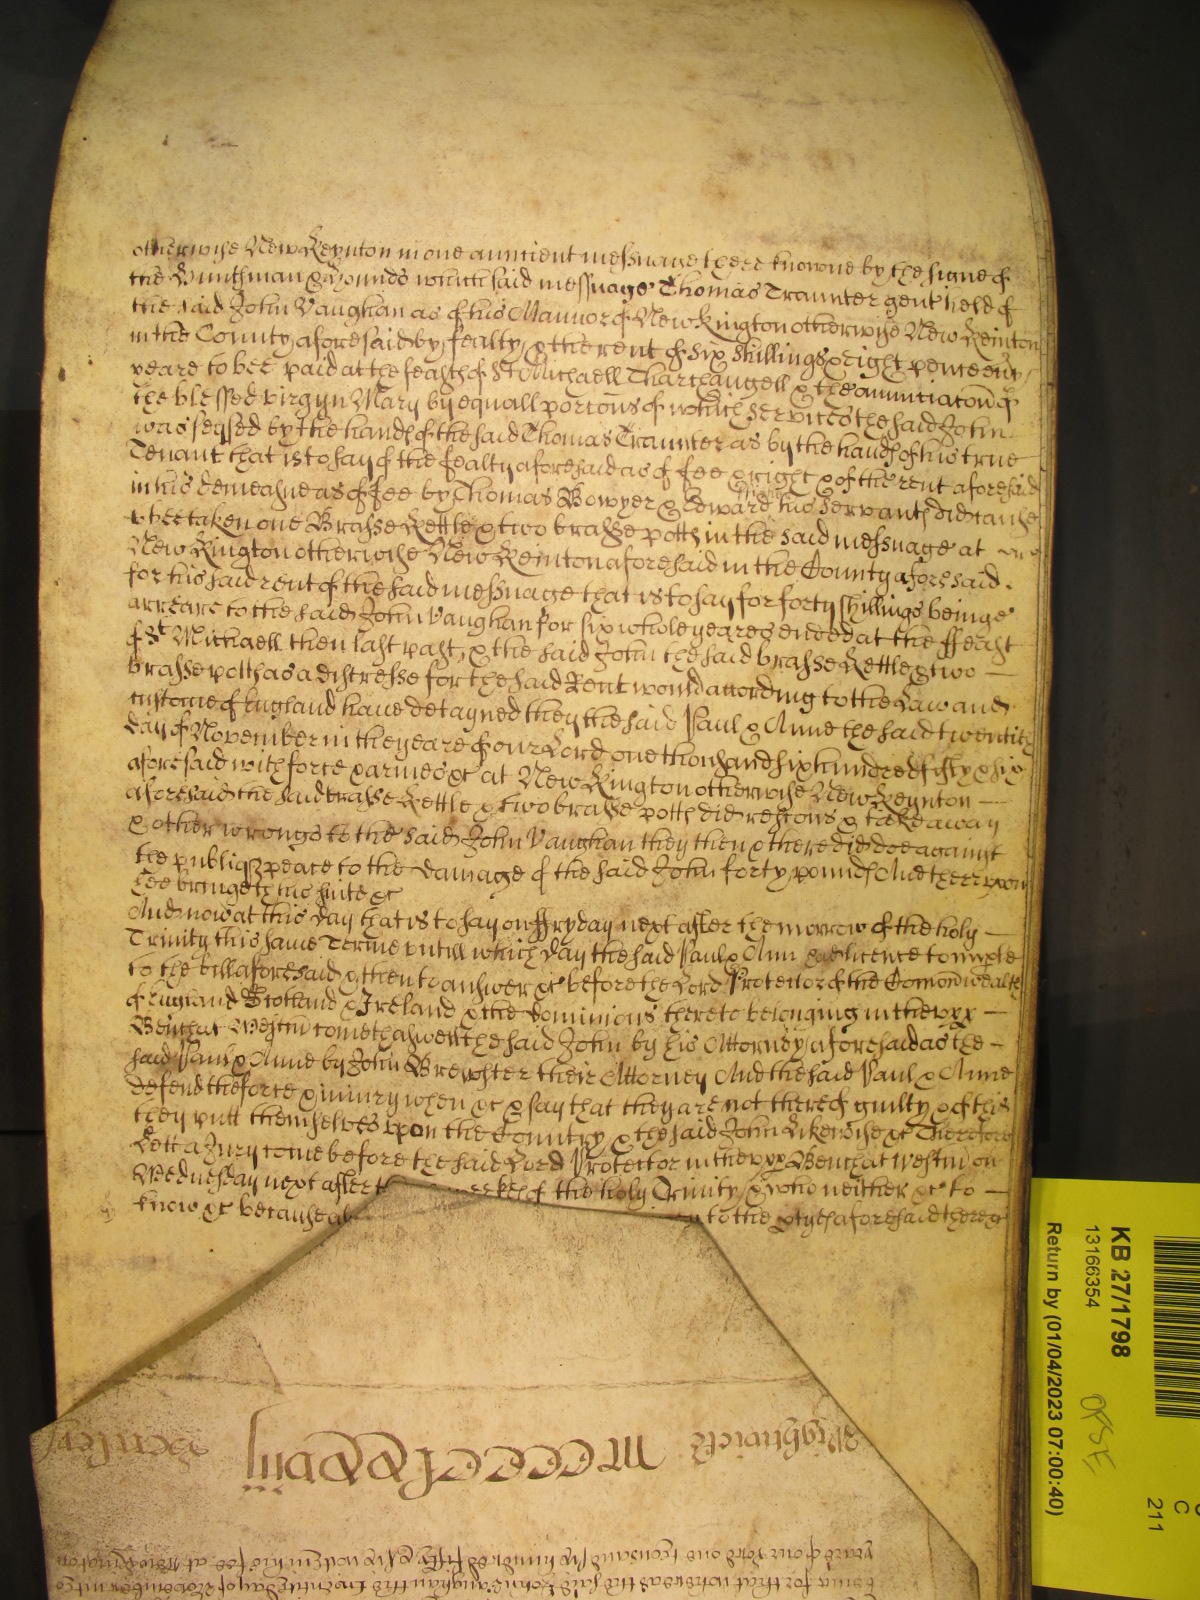 otherwise New Keynton in one auncient messuage there knowne by the signe of
the Hunthman & Hounds which said messuage Thomas Traunter gent held of
the said John Vaughan as of his Mannor of New Kington otherwise New Keinton
in the County aforesaid by fealty & the rent of six shillings & eight pence eny
yeare to bee paid at the feasts of St Michaell Tharchangell & the annunciacon of
the blessed virgyn Mary by equall porcons of which services the said John
was seysed by the hands of the said Thomas Traunter as by the hands of his true
Tenant that is to say of the fealty aforesaid as of fee & right & of the rent aforesaid
in his demeasne as of fee by Thomas Bowyer & Edward his servants did cause
to bee taken one Brasse Kettle & two brasse potts in the said messuage at
New Kington otherwise New Keinton aforesaid in the County aforesaid
for his said rent of the said messuage that is to say for forty shillings beinge
arreare to the said John Vaughan for six whole yeares ended at the ffeast
of St Michaell then last past, & the said John the said brasse Kettle & two
brasse potts as a distresse for the said Rent would according to the Law and
custome of England have detayned they the said Paul & Anne the said twentith
day of November in the yeare of our Lord one thousand six hundred fifty & six
aforesaid with force & armes &c at New Kington otherwise New Keynton
aforesaid the said brasse Kettle & two brasse potts did rescous & take away
& other wrongs to the said John Vaughan they then & there did doe against
the publiq peace to the damage of the said John forty pounds And thereupon
hee bringeth his suite &c
And now at this day that is to say on ffryday next after the morrow of the holy
Trinity this same Terme untill which day the said Paul & Ann had licence to imparle
to the bill aforesaid & then to answer &c before the Lord Protector of the Comonwealth
of England Scotland & Ireland & the Dominions thereto belonging in the upp
Bench at Westm cometh aswell the said John by his Attorney aforesaid as the
said Paul & Anne by John Brewster their Attorney And the said Paul & Anne
defend the force & iniury when &c & say that they are not thereof guilty & of this
they putt themselves upon the Country & the said John likewise &c Therefore
Lett a Jury come before the said Lord Protector in the upp Bench at Westm on
Wednesday next after of the holy Trinity & who neither &c to
know &c because to the ptyes aforesaid thereof
Rightwick mccccl xx viij
yeare of our Lord one thousand six hundred fifty & six in his fee at New Kington
for that whereas the said John Vaughan the twentith day of November in the
KB 27/1798
13166354
Return by (01/04/2023 07:00:40)
OPSE
C
211